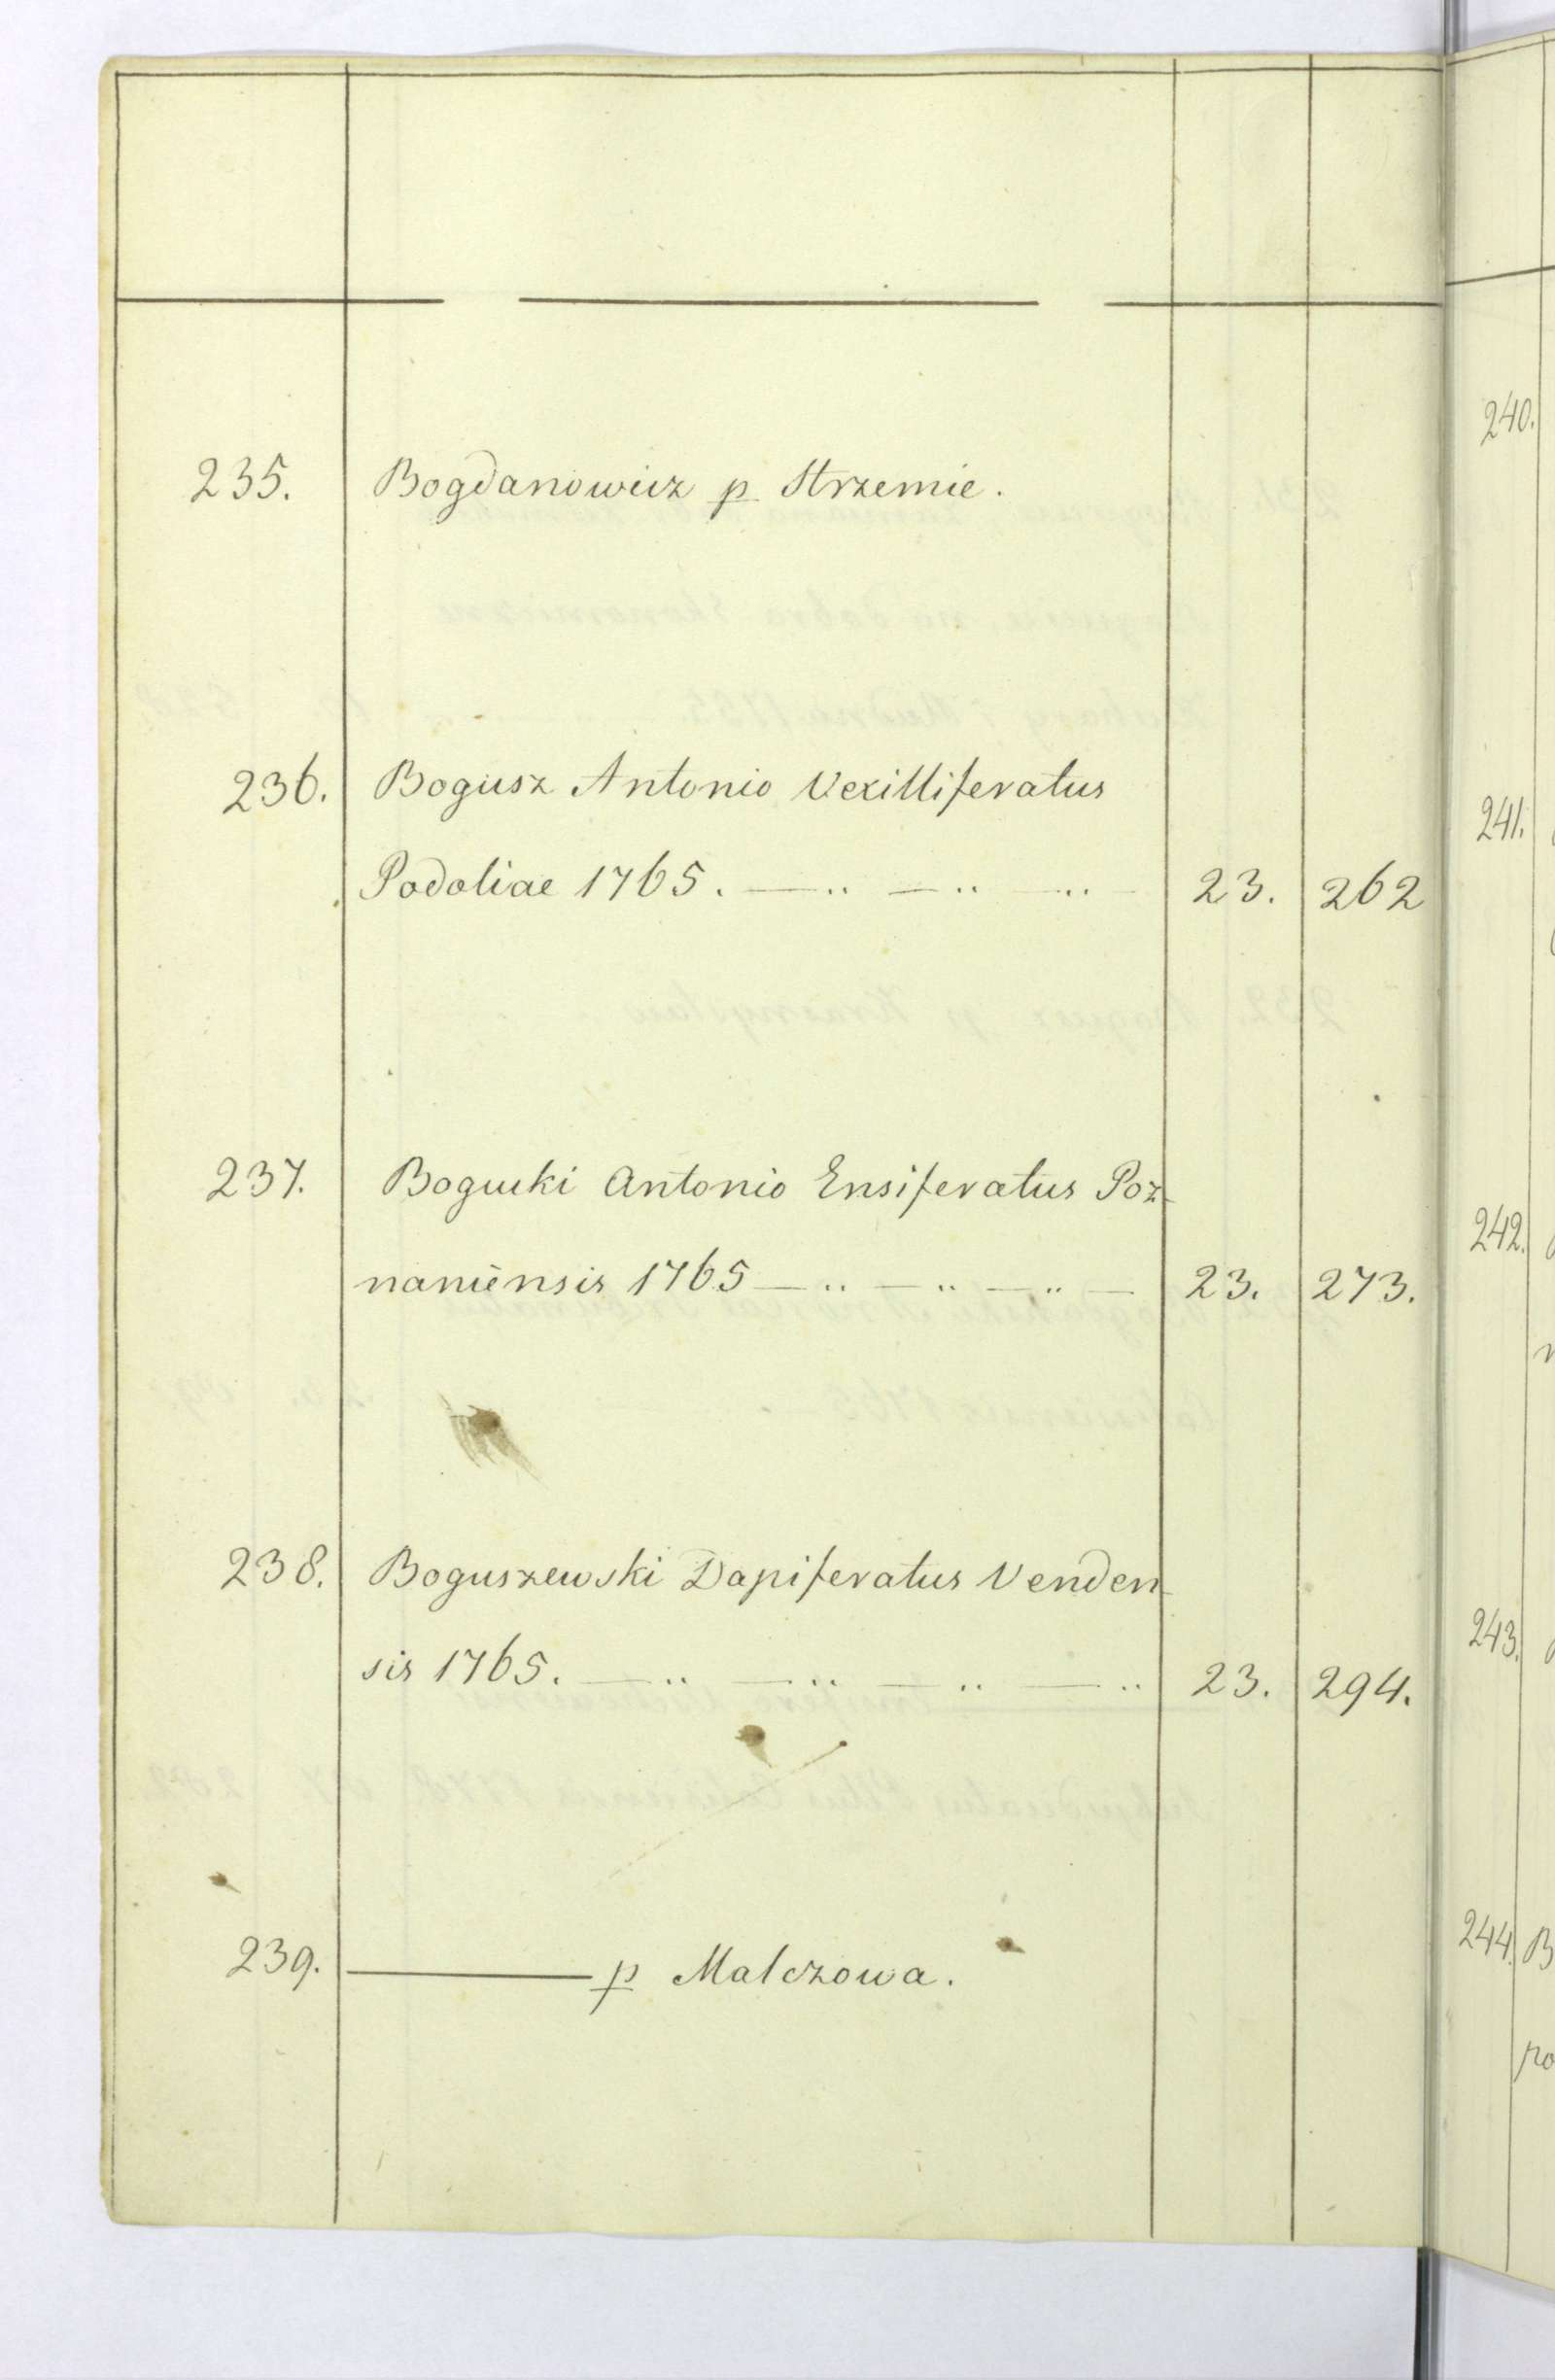 235. Bogdanowicz p Strzemie.
236. Bogusz Antonio Vexilliferatus
Podoliae 1765. — .. — .. — .. — 23. 262
237. Bogucki Antonio Ensiferatus Poz-
naniensis 1765 — .. — .. — .. — 23. 273.
238. Boguszewski Dapiferatus Venden-
sis 1765. — .. — .. — .. — .. 23. 294.
239. ——— p Malczowa.
240.
241.
242.
243.
244. B
po